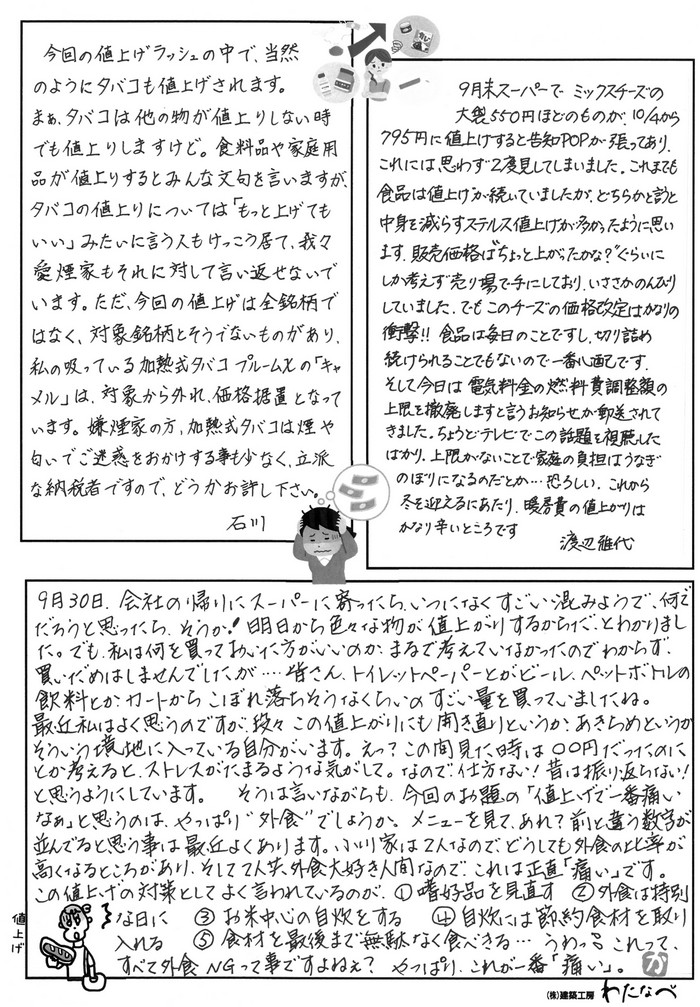 今回の値上げラッシュの中で、当然
のようにタバコも値上げされます。
まぁ、タバコは他の物が値上りしない時
でも値上りしますけど。食料品や家庭用
品が値上りするとみんな文句を言いますが、
タバコの値上りについては「もっと上げても
いい」みたいに言う人もけっこう居て、我々
愛煙家もそれに対して言い返せないで
います。ただ、今回の値上げは全銘柄で
はなく、対象銘柄とそうでないものがあり、
私の吸っている加熱式タバコ プルームXの「キャ
メル」は、対象から外れ、価格据置となって
います。嫌煙家の方、加熱式タバコは煙や
匂いでご迷惑をおかけする事も少なく、立派
な納税者ですので、どうかお許し下さい。
石川
9月末スーパーで ミックスチーズの
大袋550円ほどのものが、10/4から
795円に値上げすると告知POPが張ってあり、
これには、思わず2度見してしまいました。これまでも
食品は値上げが続いていましたが、どちらかと言うと
中身を減らすステルス値上げが多かったように思い
ます。販売価格は“ちょっと上がったかな?”ぐらいに
しか考えず売り場で手にしており、いささかのんびり
していました。でもこのチーズの価格改定はかなりの
衝撃!! 食品は毎日のことですし、切り詰め
続けられることでもないので一番心配です。
そして今日は 電気料金の燃料費調整額の
上限を撤廃しますと言うお知らせが郵送されて
きました。ちょうどテレビでこの話題を視聴した
ばかり。上限がないことで家庭の負担はうなぎ
のぼりになるのだとか…恐ろしい。これから
冬を迎えるにあたり、暖房費の値上がりは
かなり辛いところです
渡辺雅代
9月30日、会社の帰りにスーパーに寄ったら、いつになくすごい混みようで、何で
だろうと思ったら、そうか!明日から色々な物が値上がりするからだ、とわかりまし
た。でも、私は何を買っておいた方がいいのか、まるで考えていなかったのでわからず、
買いだめはしませんでしたが…。皆さん、トイレットペーパーとかビール、ペットボトルの
飲料とか、カートからこぼれ落ちそうなくらいのすごい量を買っていましたね。
最近私はよく思うのですが、段々この値上がりにも開き直りというか、あきらめというか
そういう境地に入っている自分がいます。えっ?この間見た時は〇〇円だったのに
とか考えると、ストレスがたまるような気がして。なので、仕方ない!昔は振り返らない!
と思うようにしています。 そうは言いながらも、今回のお題の「値上げで一番痛い
なぁ」と思うのは、やっぱり“外食”でしょうか。メニューを見て、あれ?前と違う数字が
並んでると思う事は最近よくあります。小川家は2人なので、どうしても外食の比率が
高くなるところがあり、そして2人共、外食大好き人間なので、これは正直「痛い」です。
この値上げの対策としてよく言われているのが、①嗜好品を見直す ②外食は特別
な日に ③お米中心の自炊をする ④自炊には節約食材を取り
入れる ⑤食材を最後まで無駄なく食べきる… うわっ〜これって、
すべて外食NGって事ですよねぇ? やっぱり、これが一番「痛い」。
値上げ
(株)建築工房 わたなべ